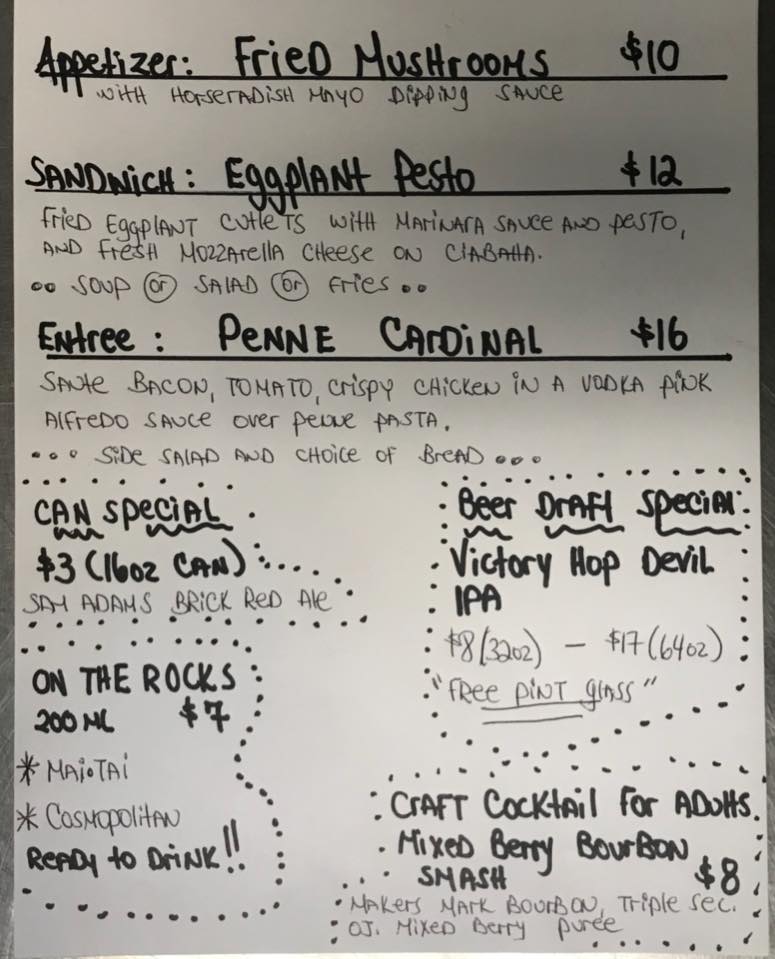 Appetizer: Fried Mushrooms $10
with Horseradish Mayo Dipping Sauce
Sandwich: Eggplant Pesto $12
Fried Eggplant Cutlets with Marinara Sauce and Pesto,
and Fresh Mozzarella Cheese on Ciabatta.
•• Soup or Salad or Fries ••
Entree: Penne Cardinal $16
Saute Bacon, Tomato, Crispy Chicken in a Vodka Pink
Alfredo Sauce over penne Pasta.
••• Side Salad and Choice of Bread •••
Can Special
$3 (16oz Can)
Sam Adams Brick Red Ale
Beer Draft Special
Victory Hop Devil
IPA
$8 (32oz) – $17 (64oz)
"Free Pint Glass"
On The Rocks
200 ML $7
* Mai•Tai
* Cosmopolitan
Ready to Drink!!
Craft Cocktail For Adults.
Mixed Berry Bourbon
Smash $8
Makers Mark Bourbon, Triple Sec.
OJ. Mixed Berry Puree